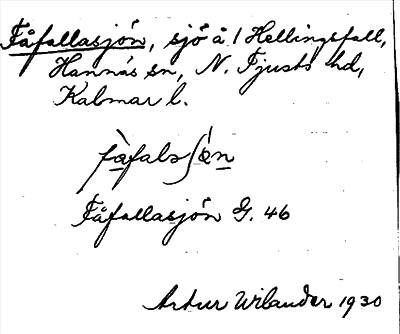 Fåfallasjön, sjö å 1 Hellingsfall,
Hannäs sn, N. Tjusts hd,
Kalmar l.
fà̱fals∫ö́n
Fåfallasjön G. 46
Artur Wilander 1930